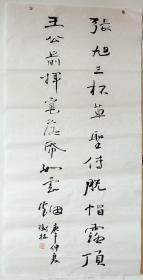 張旭三杯草聖傳脫帽露頂
王公前揮毫落紙如雲烟